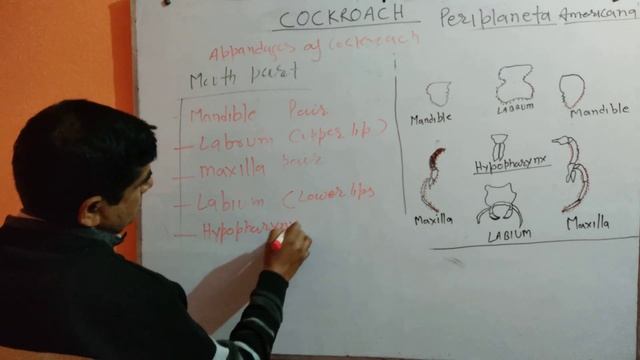 COCKROACH Periplaneta Americana
Appandages of cockroach
Mouth part
Mandible Pair
Labrum (upper lip)
Maxilla Pair
Labium (Lower lips
Hypopharynx
Mandible
LABRUM
Mandible
Hypopharynx
Maxilla
LABIUM
Maxilla